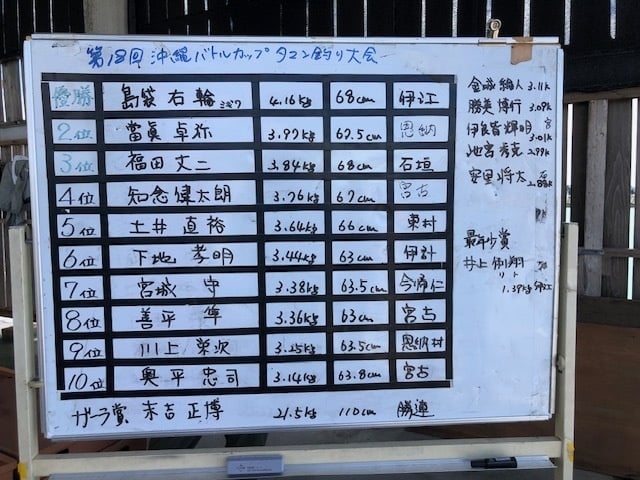 第18回 沖縄バトルカップ タマン釣り大会
優勝 島袋 右輪 4.16kg 68cm 伊江
2位 當眞 卓弥 3.97kg 67.5cm 恩納
3位 福田 丈二 3.84kg 68cm 石垣
4位 知念 健太朗 3.76kg 67cm 宮古
5位 土井 直裕 3.64kg 66cm 東村
6位 下地 孝明 3.44kg 63cm 伊計
7位 宮城 守 3.38kg 63.5cm 今帰仁
8位 善平 隼 3.36kg 63cm 宮古
9位 川上 栄次 3.25kg 63.5cm 恩納村
10位 奥平 忠司 3.14kg 63.8cm 宮古
ガーラ賞 末吉 正博 21.5kg 110cm 勝連
金城 人 3.11k
勝美 博行 3.09k
伊良皆 輝明 宮
3.01k
池宮 秀克 2.99k
安里 将太
2.88kg
最年少賞
井上 俐翔
リト
1.39kg 伊江